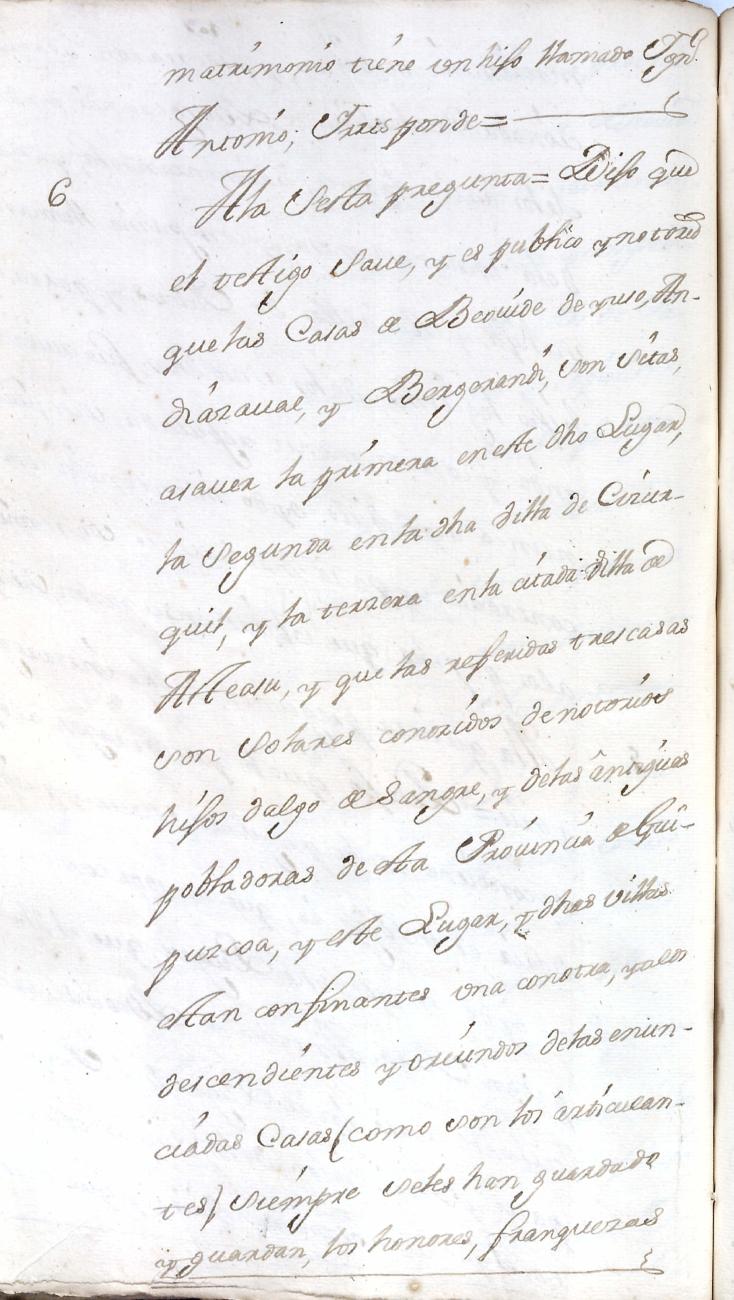 matrimonio tiene un hijo llamado Ygn.º
Antonio; Yresponde=
6
Ala Sesta pregunta= Dijo que
el testigo Save, y es publico y notorio
que las Casas de Beovide de yuso, An-
diazaval, y Bergerandi, son Sitas,
asaver la primera eneste dho Lugar,
la Segunda enla dha Villa de Cizur-
quil, y la terzera enla citada Villa de
Asteasu, y que las referidas tres casas
son Solares conozidos de notorios
hijos dalgo de Sangre, y delas antiguas
pobladoras de esta Provincia de Gui-
puzcoa, y este Lugar, y dhas villas
estan confinantes una conotra, y alos
descendientes y oriundos delas enun-
ciadas Casas (como son los articulan-
tes) siempre seles han guardado
y guardan, los honores, franquezas